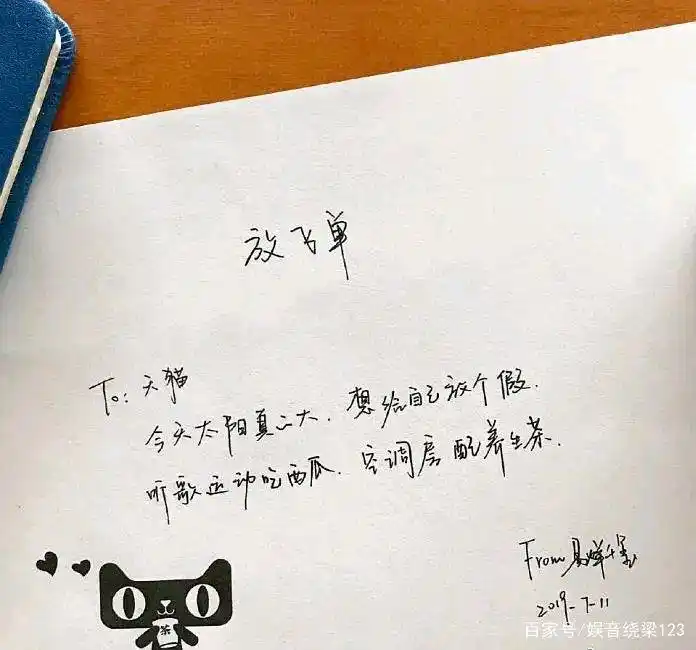 放飞单
To: 天猫
今天太阳真心大、想给自己放个假、
听歌运动吃西瓜、空调房配养生茶、
From 易烊千玺
2019-7-11
茶
百家号/娱音绕梁123